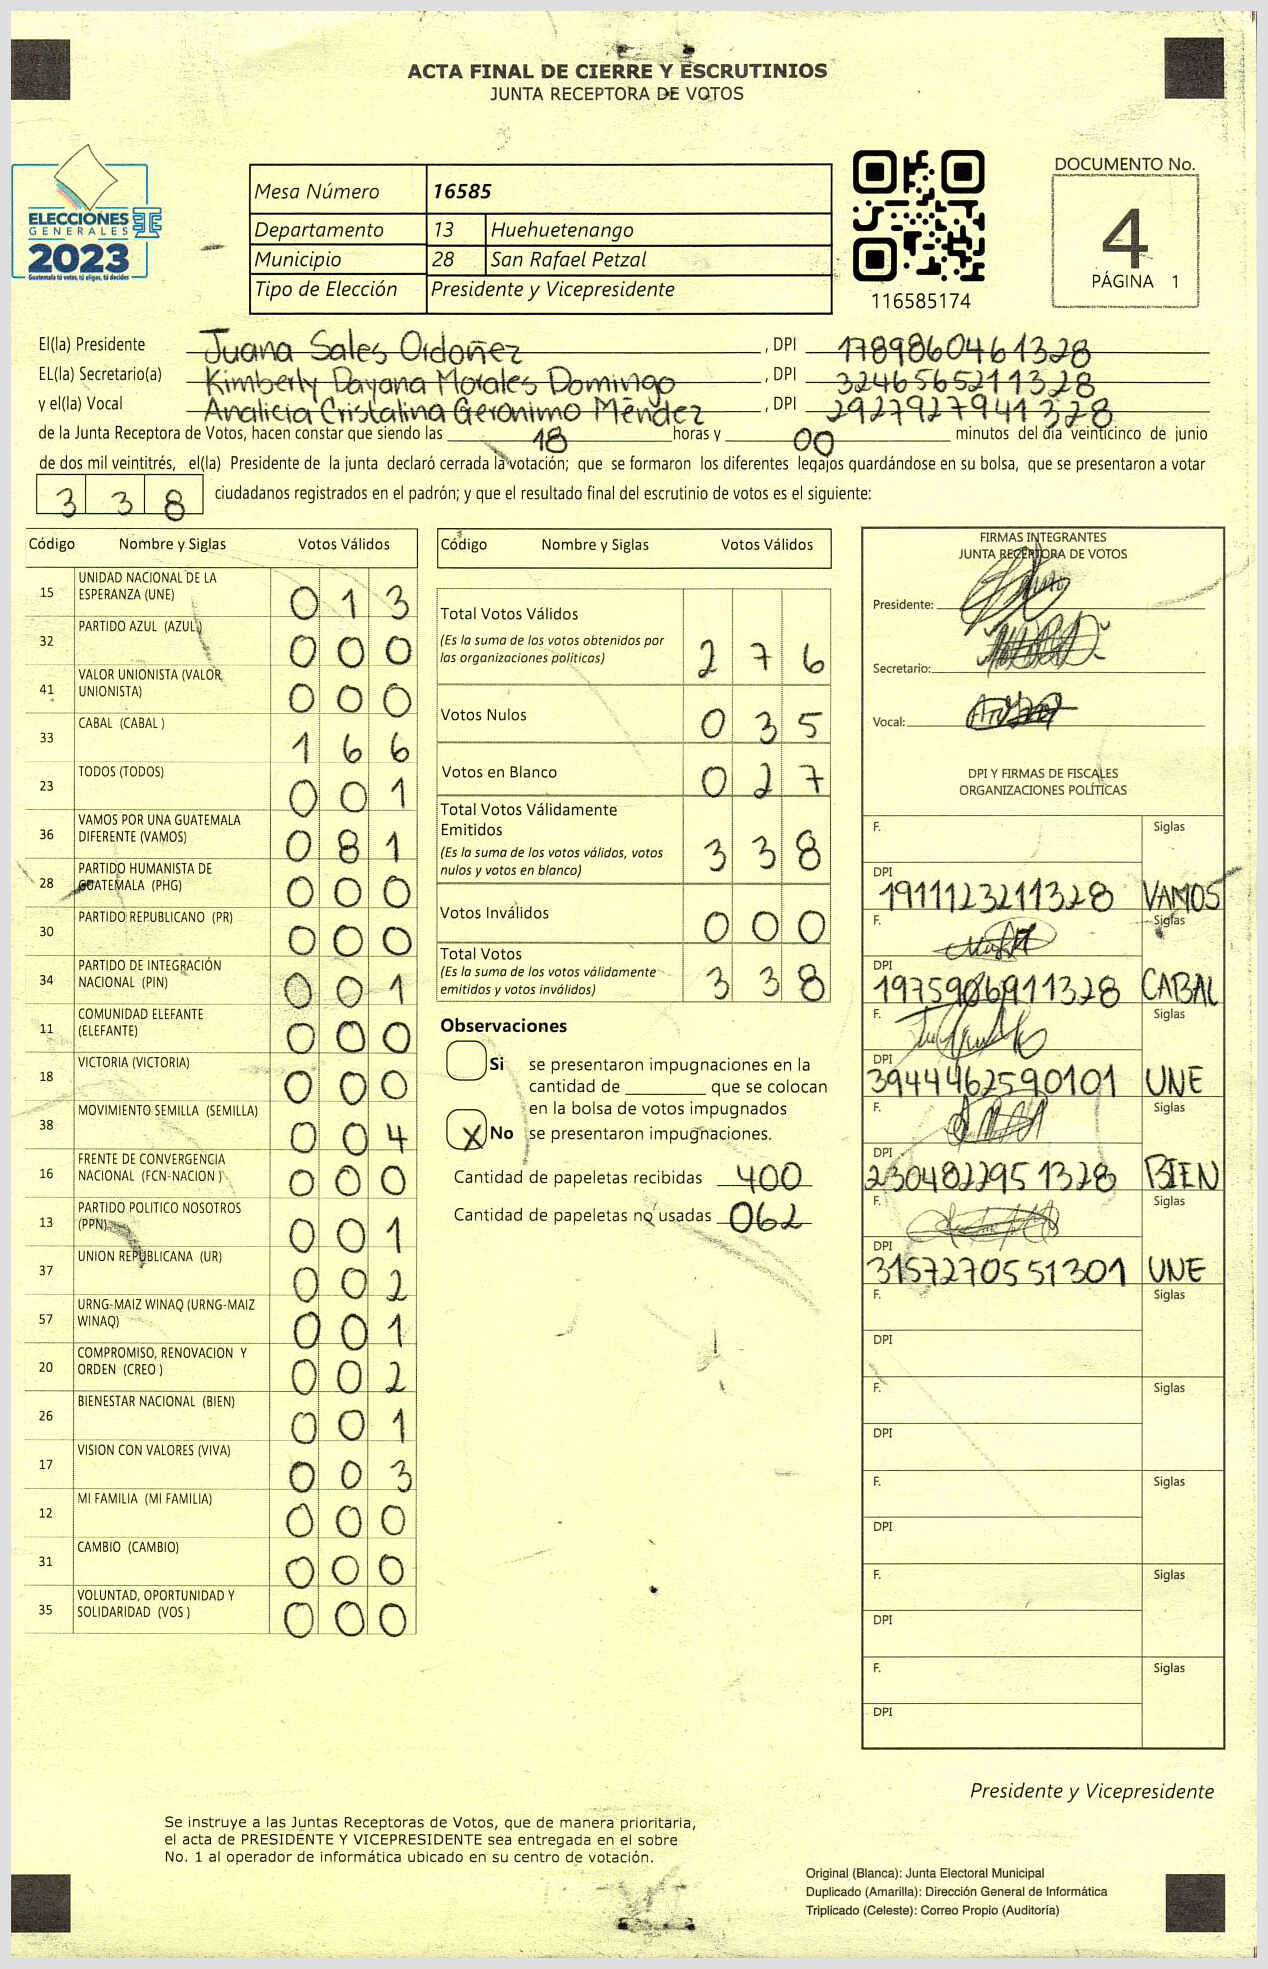 ACTA FINAL DE CIERRE Y ESCRUTINIOS
JUNTA RECEPTORA DE VOTOS
ELECCIONES
GENERALES
2023
Guatemala tú votas, tú eliges, tú decides
Mesa Número 16585
Departamento 13 Huehuetenango
Municipio 28 San Rafael Petzal
Tipo de Elección Presidente y Vicepresidente
116585174
DOCUMENTO No.
4
PÁGINA 1
El(la) Presidente Juana Sales Ordoñez , DPI 1789860461328
EL(la) Secretario(a) Kimberly Dayana Morales Domingo , DPI 3246565211328
y el(la) Vocal Analicia Cristalina Geronimo Méndez , DPI 2927927941328
de la Junta Receptora de Votos, hacen constar que siendo las 18 horas y 00 minutos del día veinticinco de junio
de dos mil veintitrés, el(la) Presidente de la junta declaró cerrada la votación; que se formaron los diferentes legajos guardándose en su bolsa, que se presentaron a votar
338 ciudadanos registrados en el padrón; y que el resultado final del escrutinio de votos es el siguiente:
Código Nombre y Siglas Votos Válidos
15 UNIDAD NACIONAL DE LA ESPERANZA (UNE) 013
32 PARTIDO AZUL (AZUL) 000
41 VALOR UNIONISTA (VALOR UNIONISTA) 000
33 CABAL (CABAL ) 166
23 TODOS (TODOS) 001
36 VAMOS POR UNA GUATEMALA DIFERENTE (VAMOS) 081
28 PARTIDO HUMANISTA DE GUATEMALA (PHG) 000
30 PARTIDO REPUBLICANO (PR) 000
34 PARTIDO DE INTEGRACIÓN NACIONAL (PIN) 001
11 COMUNIDAD ELEFANTE (ELEFANTE) 000
18 VICTORIA (VICTORIA) 000
38 MOVIMIENTO SEMILLA (SEMILLA) 004
16 FRENTE DE CONVERGENCIA NACIONAL (FCN-NACION ) 000
13 PARTIDO POLITICO NOSOTROS (PPN) 001
37 UNION REPUBLICANA (UR) 002
57 URNG-MAIZ WINAQ (URNG-MAIZ WINAQ) 001
20 COMPROMISO, RENOVACION Y ORDEN (CREO ) 002
26 BIENESTAR NACIONAL (BIEN) 001
17 VISION CON VALORES (VIVA) 003
12 MI FAMILIA (MI FAMILIA) 000
31 CAMBIO (CAMBIO) 000
35 VOLUNTAD, OPORTUNIDAD Y SOLIDARIDAD (VOS ) 000
Código Nombre y Siglas Votos Válidos
Total Votos Válidos
(Es la suma de los votos obtenidos por
las organizaciones políticas) 276
Votos Nulos 035
Votos en Blanco 027
Total Votos Válidamente
Emitidos
(Es la suma de los votos válidos, votos
nulos y votos en blanco) 338
Votos Inválidos 000
Total Votos
(Es la suma de los votos válidamente
emitidos y votos inválidos) 338
Observaciones
Si se presentaron impugnaciones en la
cantidad de ________ que se colocan
en la bolsa de votos impugnados
X No se presentaron impugnaciones.
Cantidad de papeletas recibidas 400
Cantidad de papeletas no usadas 062
FIRMAS INTEGRANTES
JUNTA RECEPTORA DE VOTOS
Presidente:
Secretario:
Vocal:
DPI Y FIRMAS DE FISCALES
ORGANIZACIONES POLÍTICAS
F. Siglas
DPI 1911123211328 VAMOS
F. Siglas
DPI 1975906911328 CABAL
F. Siglas
DPI 3944462590101 UNE
F. Siglas
DPI 2304822951328 BIEN
F. Siglas
DPI 3157270551301 UNE
F. Siglas
DPI
F. Siglas
DPI
F. Siglas
DPI
F. Siglas
DPI
F. Siglas
DPI
Presidente y Vicepresidente
Se instruye a las Juntas Receptoras de Votos, que de manera prioritaria,
el acta de PRESIDENTE Y VICEPRESIDENTE sea entregada en el sobre
No. 1 al operador de informática ubicado en su centro de votación.
Original (Blanca): Junta Electoral Municipal
Duplicado (Amarilla): Dirección General de Informática
Triplicado (Celeste): Correo Propio (Auditoría)